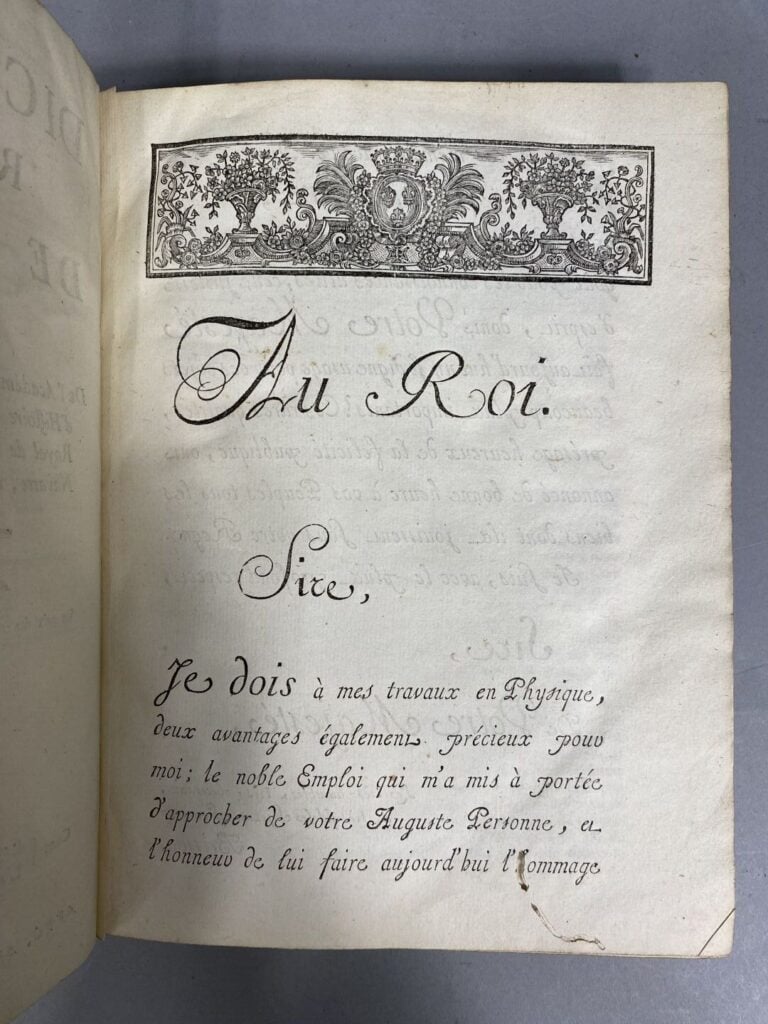 DIC
R
DE
De l'Académ
d'Histoire
Royal de
Navarre,
Au Roi.
Sire,
Je dois à mes travaux en Physique,
deux avantages également précieux pour
moi; le noble Emploi qui m'a mis à portée
d'approcher de votre Auguste Personne, et
l'honneur de lui faire aujourd'hui l'hommage